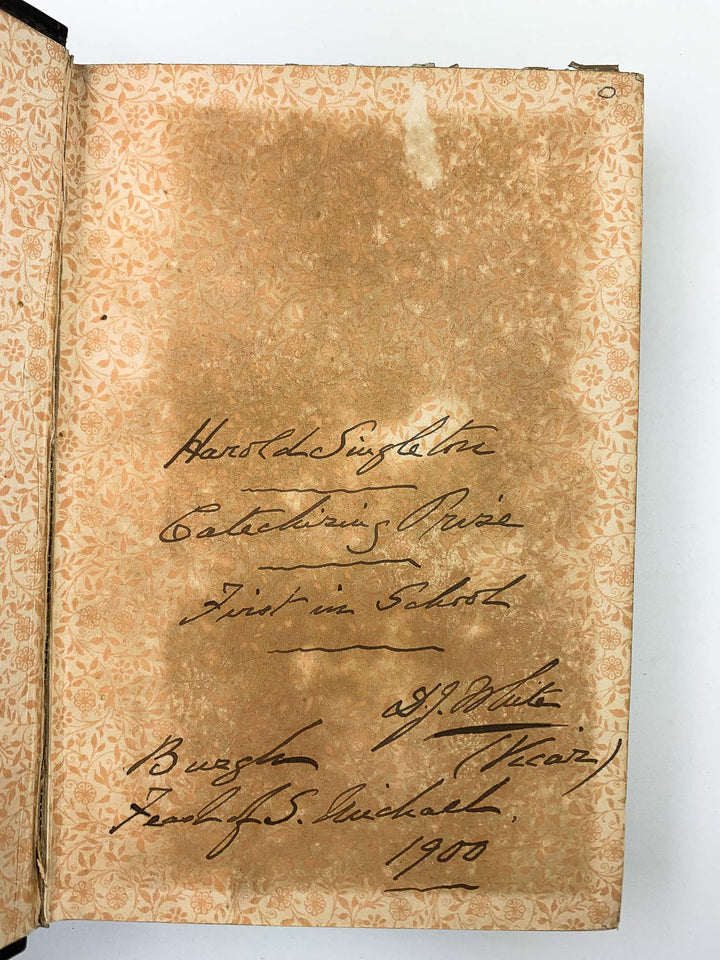 Harold Singleton
Catechizing Prize
First in School
D.J. White
(Vicar)
Burgh
Feast of S. Michael.
1900